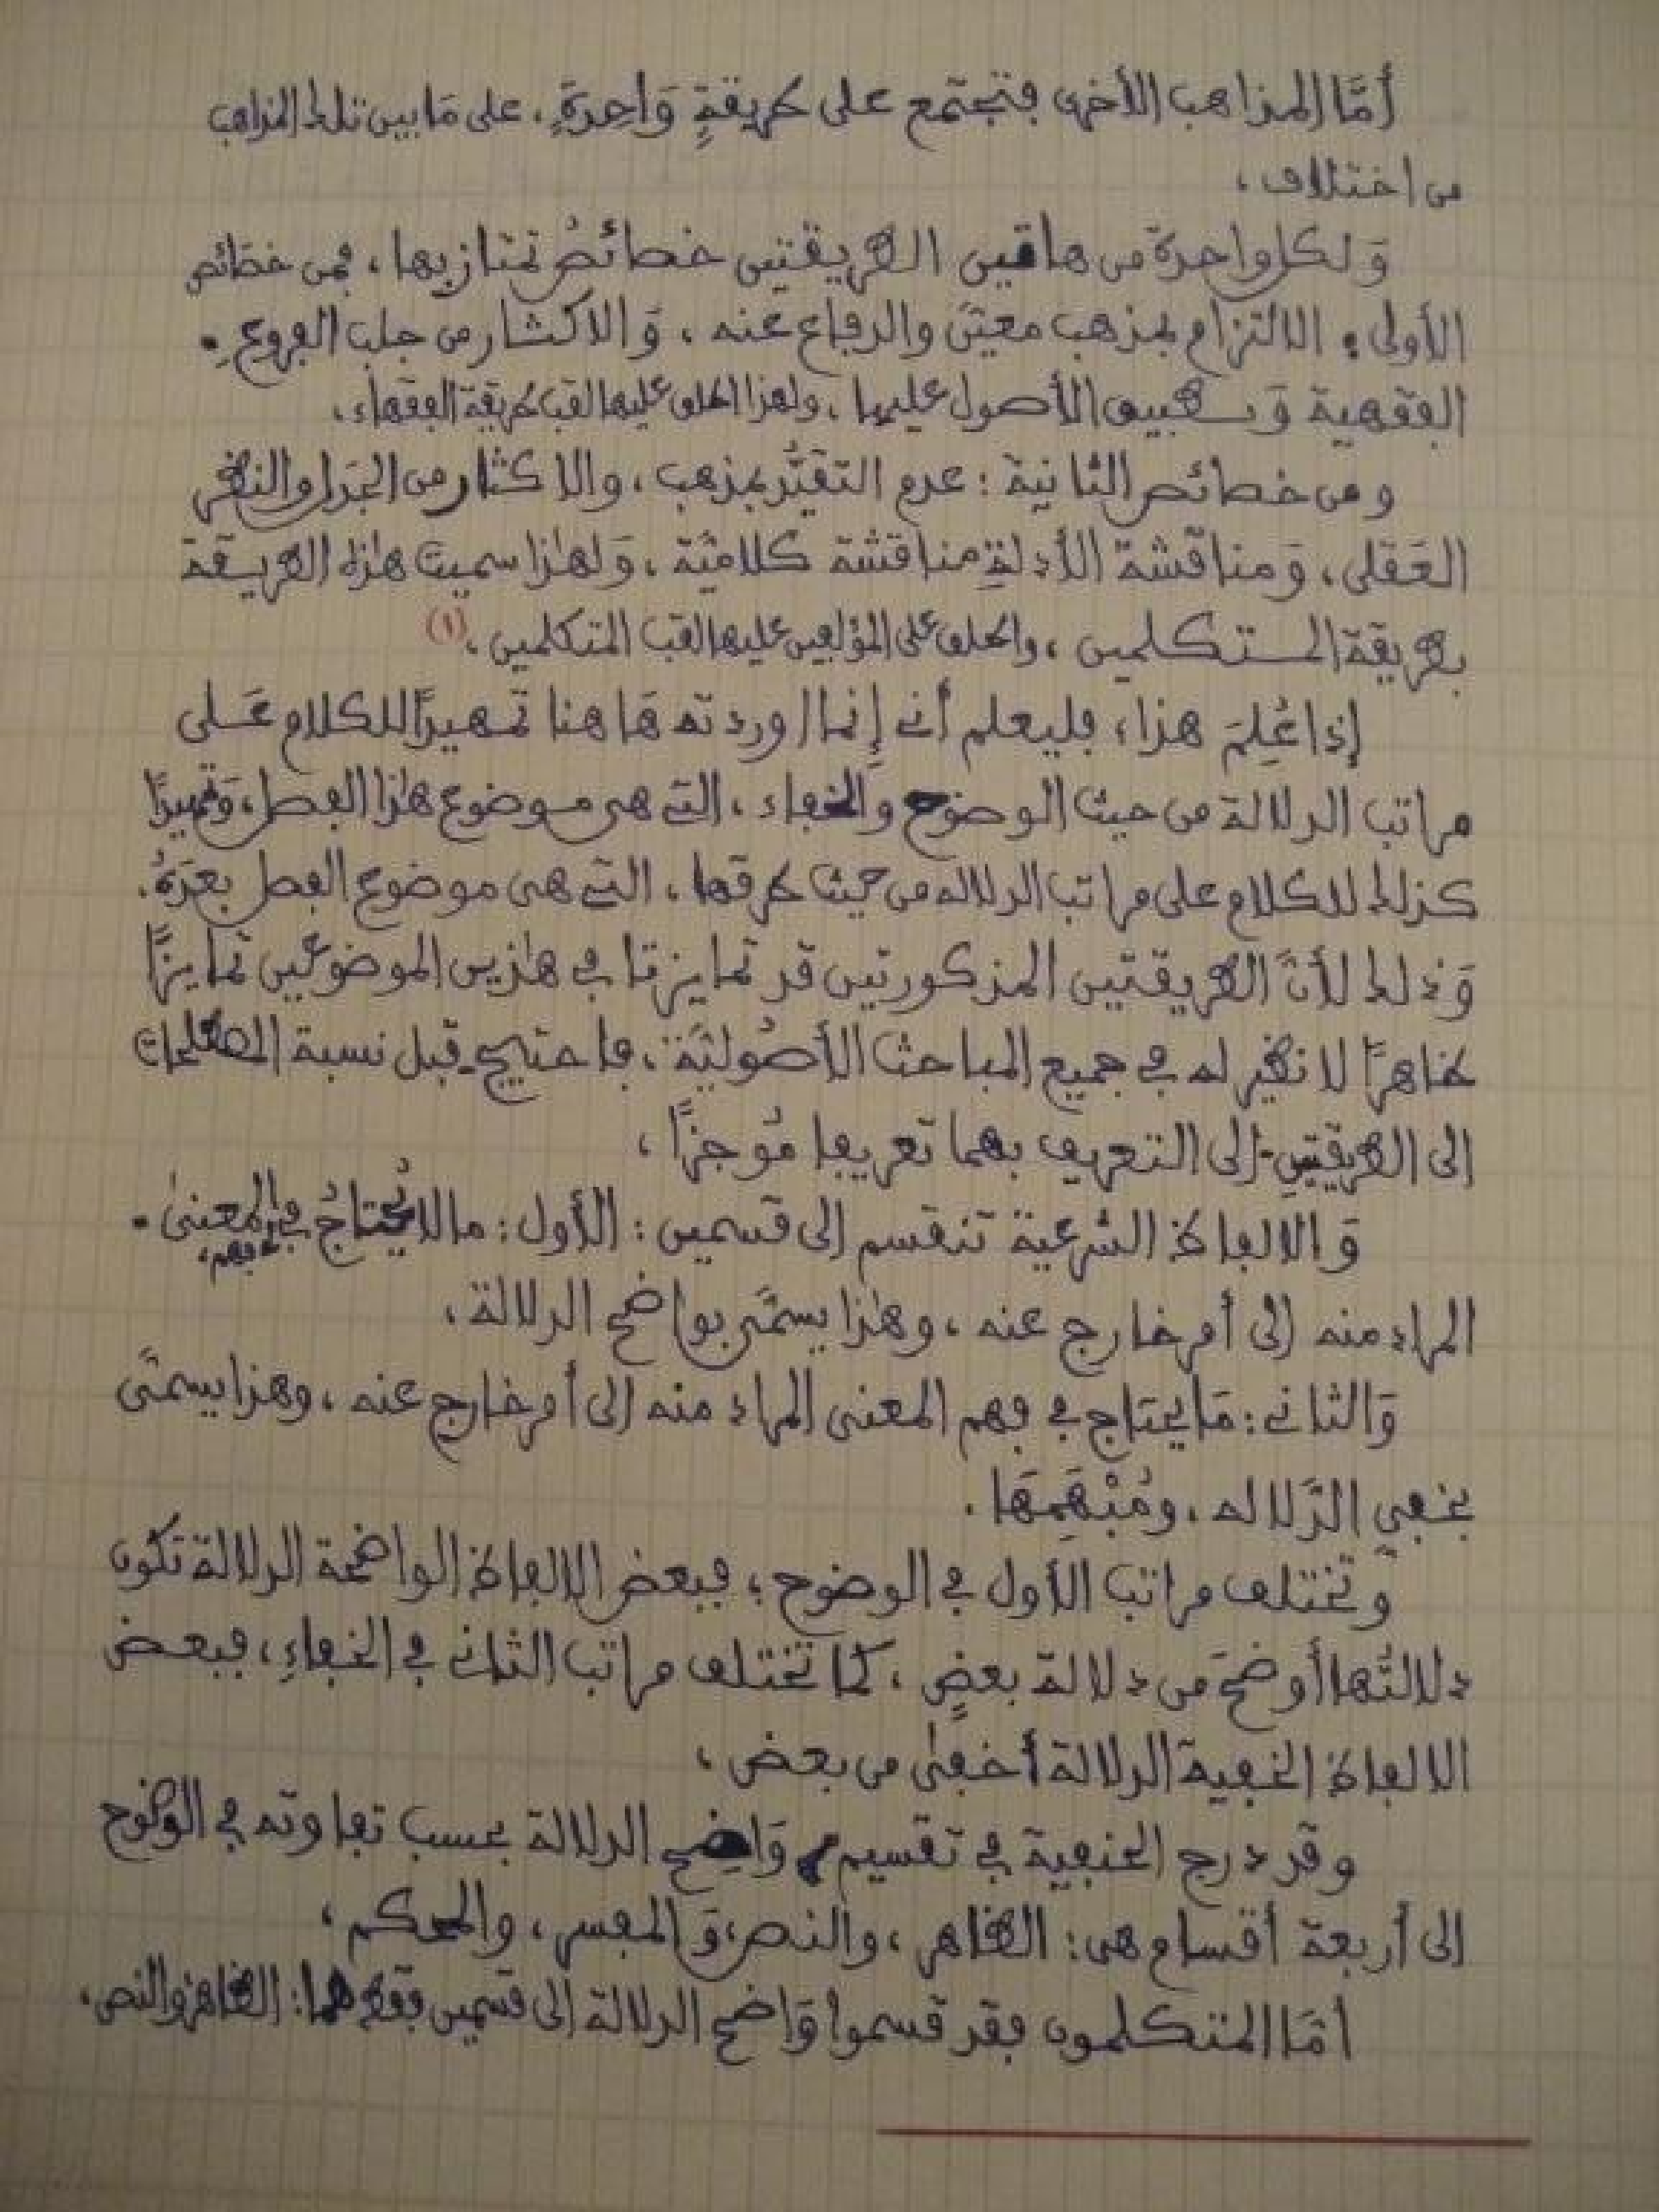 أمَّا المذاهب الأخرى فتجتمع على طريقةٍ وَاحِدةٍ، على مَا بين تلك المذاهب
من اختلاف،
وَلكل واحدة من هاتين الطريقتين خصائصُ تمتاز بها، فمن خصَائص
الأولى: الالتزام بمذهب معيَّن والدفاع عنه، وَالاكثار من جلب الفروعِ
الفقهية وَتطبيق الأصول عليها، ولهذا أطلق عليها لقب طريقة الفقهاء،
ومن خصائص الثانية: عدم التقيُّد بمذهب، والاكثار من الجَدل والنظر
العَقلي، وَمناقشة الأدلةِ مناقشة كلاميَّة، وَلهٰذا سميت هٰذه الطريقة
بطريقة المتكلمين، وأطلق على المؤلفين عليها لقب المتكلمين، (١)
إذا عُلِمَ هذا، فليعلم أني إنما اوردته هَاهنا تمهيدًا للكلام عَلى
مراتب الدلالة من حيث الوضوح والخفاء، التي هي موضوع هٰذا الفصل، وَتمهيدًا
كذلك للكلام على مراتب الدلاله من حيث طرقها، التي هي موضوع الفصل بعدَهُ،
وَذلك لأنَّ الطريقتين المذكورتين قد تمايزتا في هٰذين الموضوعين تمايزًا
ظاهرًا لا نظير له في جميع المباحث الأصُوليَّة، فاحتيج - قبل نسبة المصطلحات
إلى الطريقتينِ - إلى التعريف بهما تعريفا مُوجزًا،
وَالالفاظ الشرعية تنقسم إلى قسمين: الأول: ما لا يُحتاجُ في فهم المعنىٰ
المراد منه إلى أمر خارج عنه، وهٰذا يسمَّى بواضح الدلالة،
وَالثاني: مَا يحتاج في فهم المعنى المراد منه إلى أمر خارج عنه، وهذا يسمَّى
بخفيِّ الدَّلاله، ومُبْهَمِهَا.
وتختلف مراتب الأول في الوضوح؛ فبعض الالفاظ الواضحة الدلالة تكون
دلالتُها أوضحَ من دلالة بعضٍ، كما تختلف مراتب الثاني في الخفاءِ، فبعض
الالفاظ الخفية الدلالة أخفىٰ من بعض،
وقد درج الحنفية في تقسيم وَاضح الدلالة بحسب تفاوته في الوضوح
إلى أربعة أقسام هي: الظاهر، والنص، وَالمفسر، والمحكم،
أمَّا المتكلمون فقد قسموا وَاضح الدلالة إلى قسمين فقط هما: الظاهر والنص،